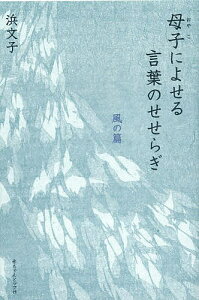 母子によせる
おやこ
言葉のせせらぎ
風の篇
浜文子